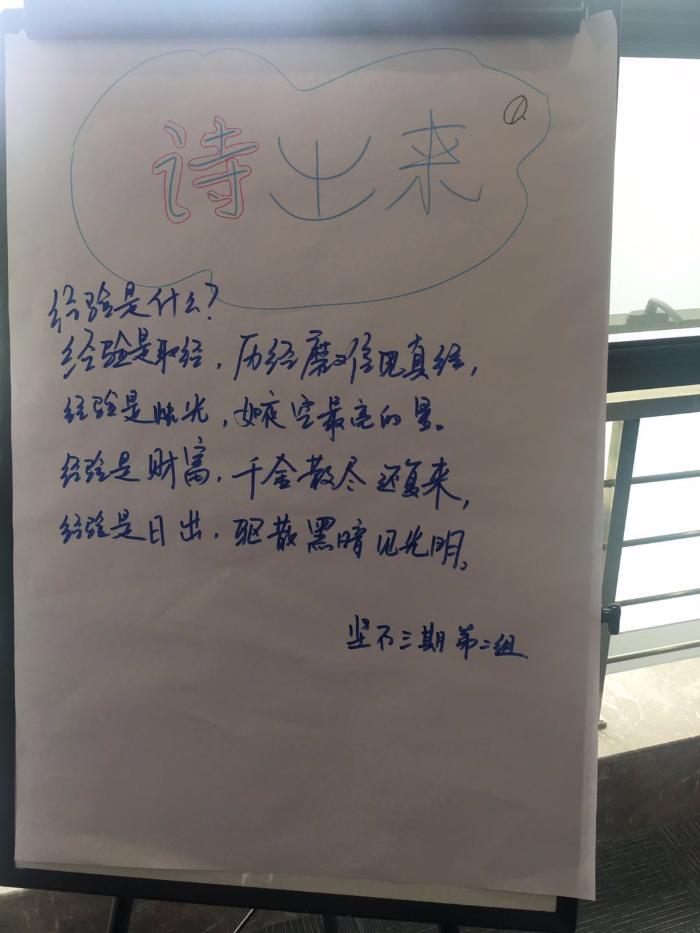 诗出来
经验是什么?
经验是取经，历经磨难得见真经，
经验是烛光，如夜空最亮的星。
经验是财富，千金散尽还复来，
经验是日出，驱散黑暗见光明。
坚石三期第二组